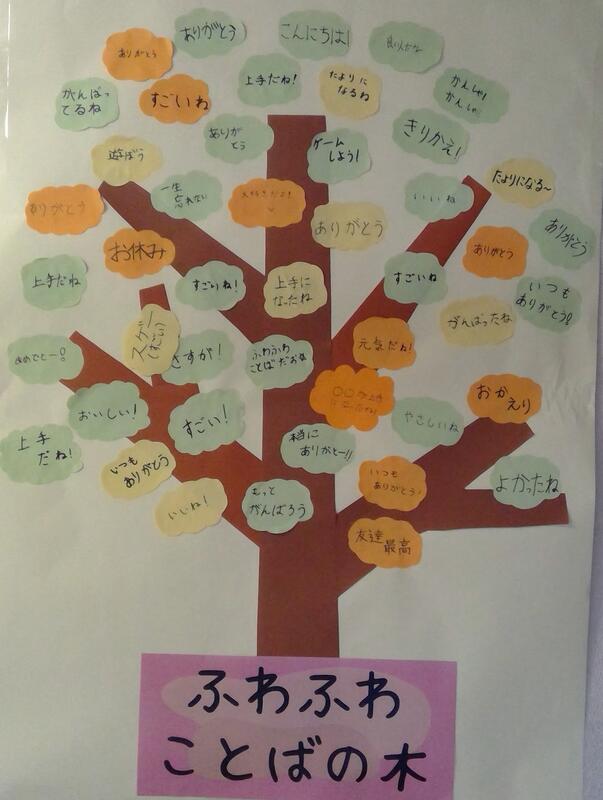 ありがとう
こんにちは!
ありがとう
上手だね!
たよりに
なるね
かんしゃ!
かんしゃ!
がんばっ
てるね
すごいね
ありが
とう
ゲーム
しよう!
きりかえ!
遊ぼう
一生
忘れない
大好きだよ!
いいね
たよりになる~
ありがとう
ありがとう
ありがとう
お休み
ありがとう
上手だね
すごいね!
上手に
なったね
すごいね
いつも
ありがとう!!
がんばったね
元気だね!
おめでとー!!
さすが!
ふわふわ
ことばだおな
おいしい!
すごい!
やさしいね
おかえり
上手
だね!
いつも
ありがとう
本当に
ありがとー!!
いつも
ありがとう!
よかったね
いいね!
もっと
がんばろう
友達
最高
ふわふわ
ことばの木